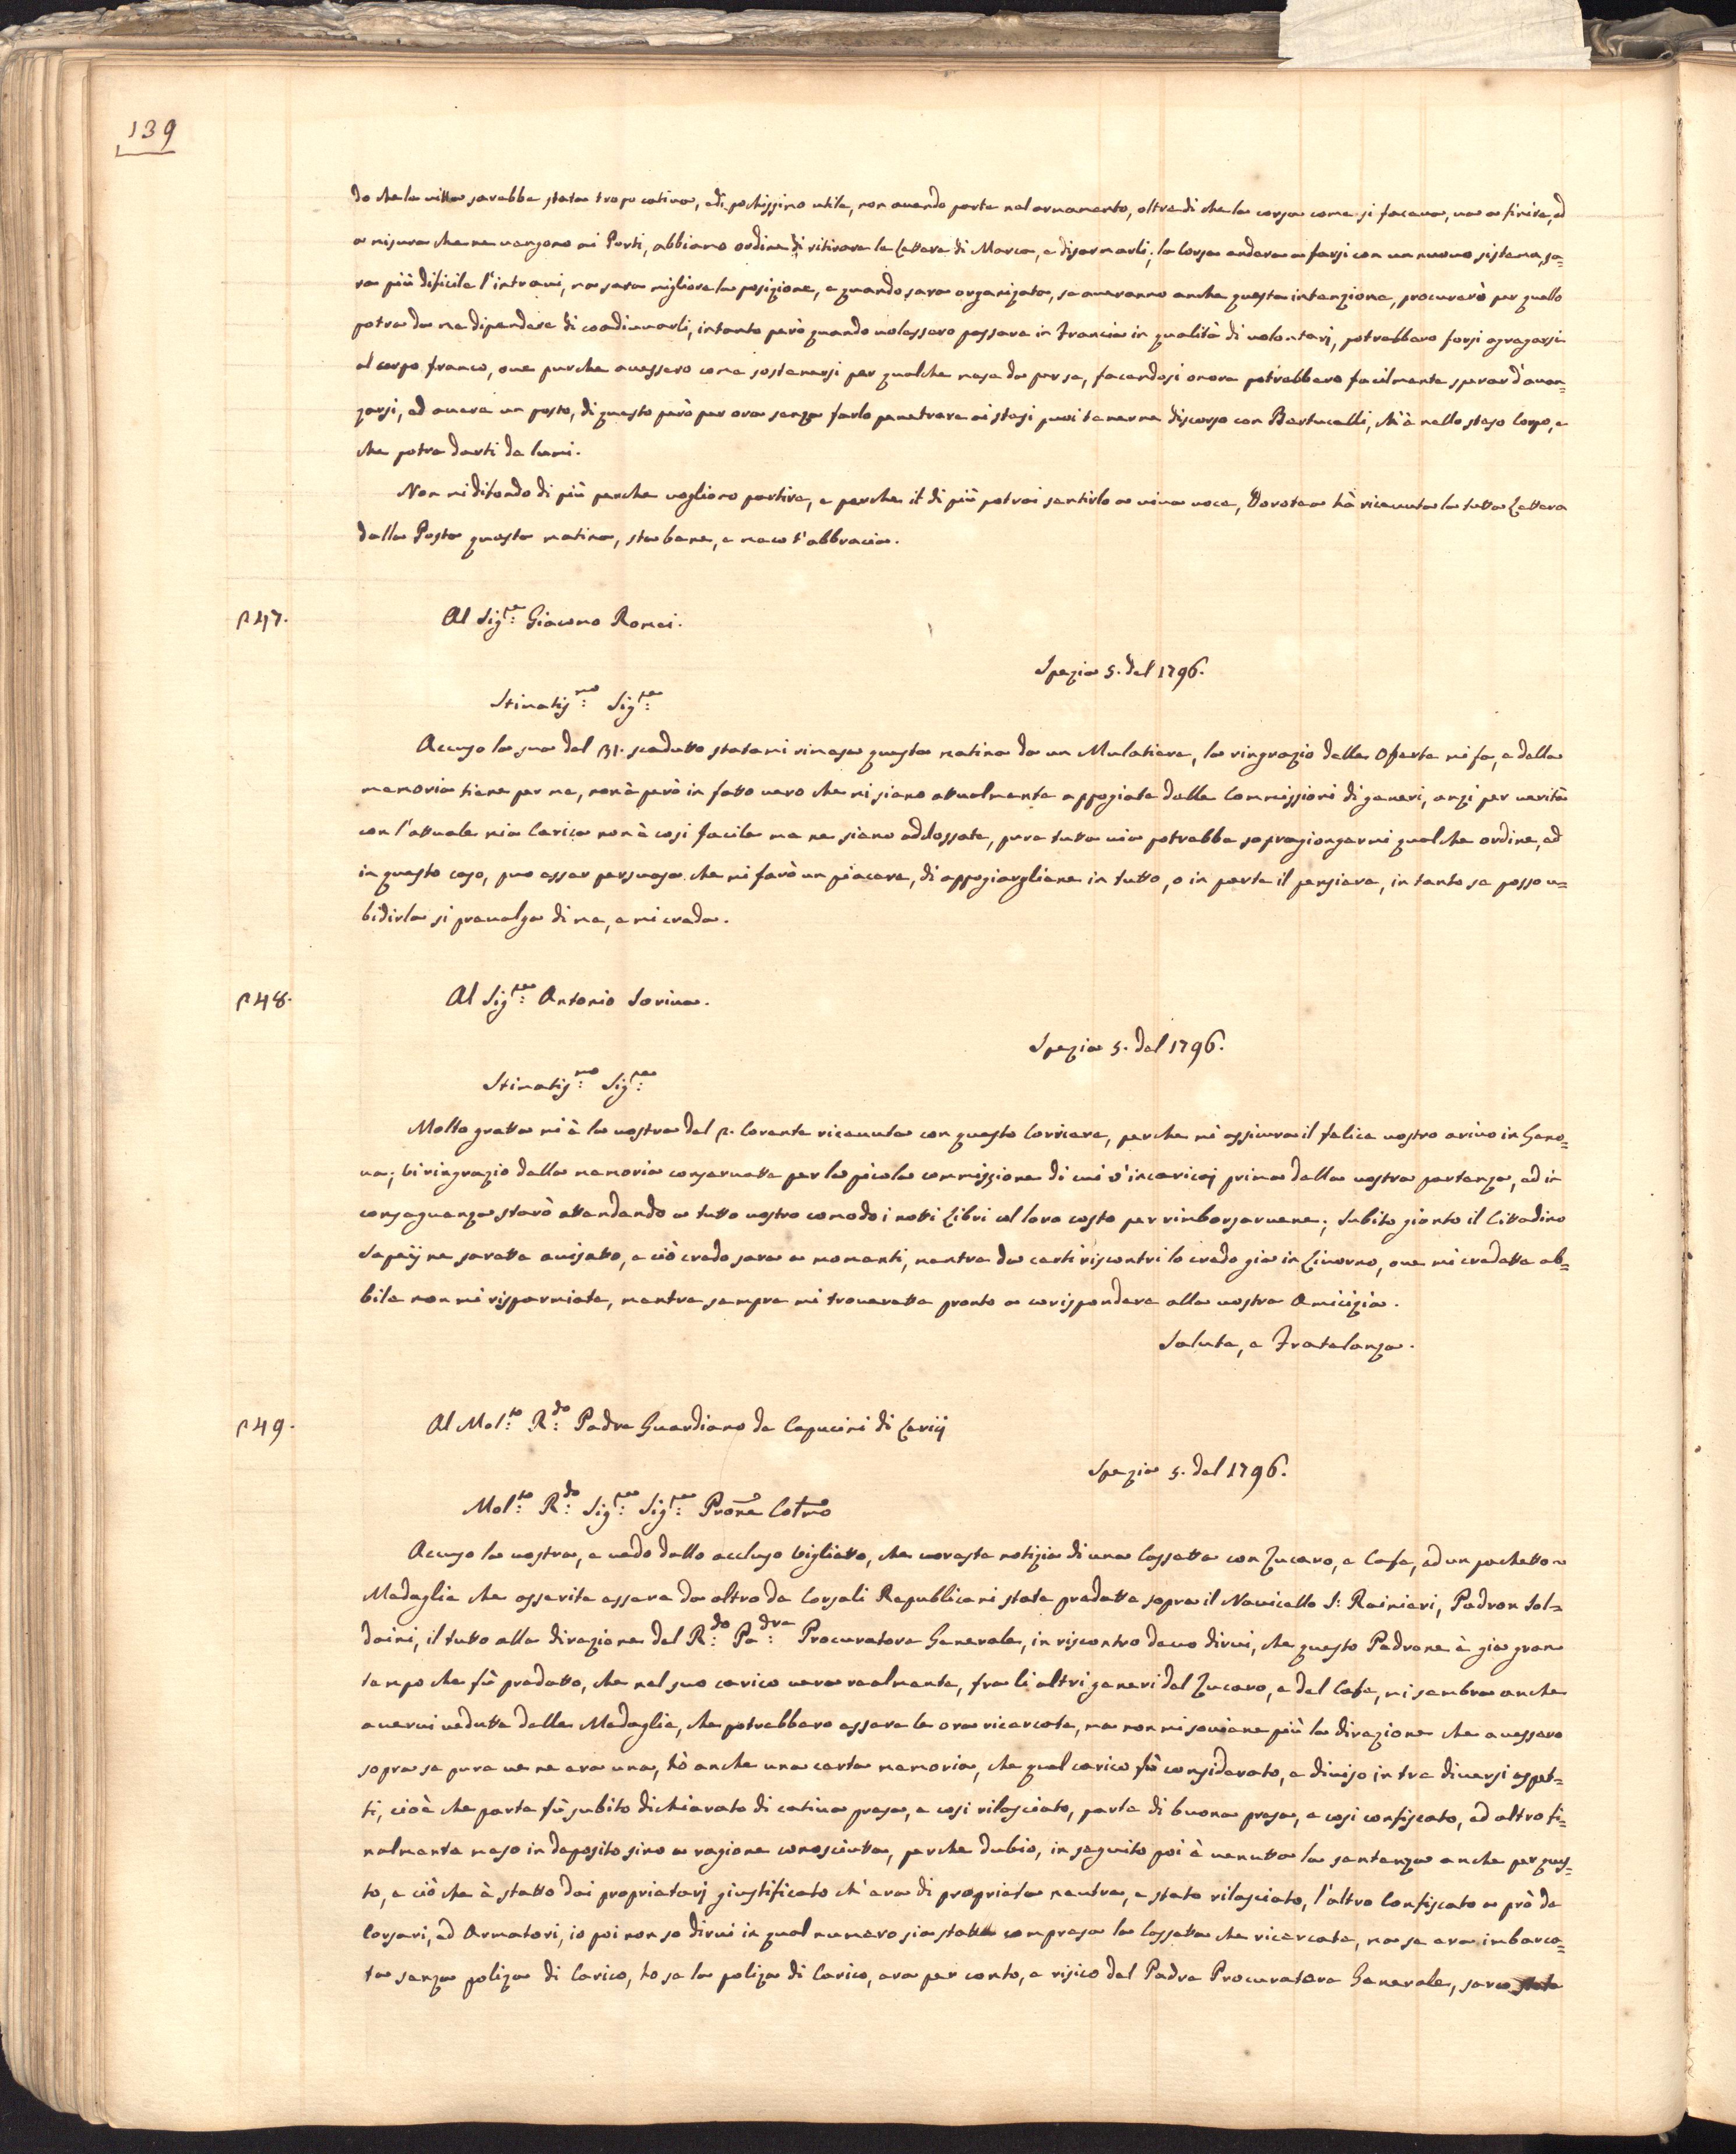 139
do che la vitta sarebbe stata tropo cativa, e di pochissimo utile, non avendo parte nel armamento, oltre di che la corsa come si faceva, va a finire, ed
a misura che ne vengono ni Porti, abbiamo ordine di ritirare le Lettere di Marca, e disarmarli; la Corsa andera a farsi con un nuovo sistema, sa=
ra più dificile l'intravi, ma sara migliore la posizione, e quando sara organizata, se averanno anche questa intenzione, procurerò per quello
potra da me dipendere di coadiuvarli, intanto però quando volessero passare in Francia in qualità di volontarj, potrebbero forsi agregarsi
al corpo franco, ove purche avessero come sostenersi per qualche mese da per se, facendosi onore potrebbero facilmente sperar d'avan=
zarsi, ed avere un posto, di questo però per ora senza farlo penetrare ai stessi puoi tenerne discorso con Bertucelli, ch'è nello steso Corpo, e
che potra darti de lumi.
Non mi difondo di più perche vogliono partire, e perche il di più potrai sentirlo a viva voce, Dorotea hà ricevuta la tutta Lettera
dalla Posta questa matina, sta bene, e meco t'abbracia.
47.
Al Sig.re Giacomo Romei.
Spezia 5. del 1796.
Stimatis.mo Sig.re
Accuso la sua del 31. scadutto statami rimesa questa matina da un Mulatiere, la ringrazio delle Oferte mi fa, e della
memoria tiene per me, non è però in fatto vero che mi siano attualmente appogiate delle Commissioni di generi, anzi per verità
con l'attuale mia Carica non è cosi facile me ne siano addossate, pure tutta via potrebbe sopragiongermi qualche ordine, ed
in questo caso, puo esser persuasa che mi farò un piacere, di appogiargliene in tutto, o in parte il pensiere, in tanto se posso u=
bidirla si prevalga di me, e mi creda.
48.
Al Sig.re Antonio Soriva.
Spezia 5. del 1796.
Stimatis.mo Sig.re
Molto gratta mi è la vostra del 2. Corente ricevuta con questo Corriere, perche mi assicura il felice vostro arivo in Geno=
va; vi ringrazio della memoria conservatta per la picola commissione di cui v'incaricaj prima della vostra partenza, ed in
conseguenza starò attendendo a tutto vostro comodo i notti Libri col loro costo per rimborsarvene; Subito gionto il Cittadino
Sapeij ne sarette avisatto, e ciò credo sara a momenti, mentre da certi riscontri lo credo gia in Livorno, ove mi credette ab=
bile non mi risparmiate, mentre sempre mi troverette pronto a corispondere alla vostra Amicizia.
Salute, e Fratelanza.
49.
Al Mol.to R.do Padre Guardiano de Capucini di Lerici
Spezia 5. del 1796.
Mol.to R.do Sig.re Sig.re Prone Colmo
Accuso la vostra, e vedo dallo accluso vigliatto, che voreste notizia di una Cassetta con Zucaro, e Cafe, ed un pachetto
Medaglie che asserite essere da altro de Corsali Republicani state predatte sopra il Navicello S: Rainieri, Padron Sol=
daini, il tutto alla direzione del R.do Pa:dre Procuratore Generale, in riscontro devo dirvi, che questo Padrone è gia gran
tempo che fù predatto, che nel suo carico vera realmente, fra li altri generi del Zucaro, e del Cafe, mi sembra anche
avervi vedutte delle Medaglie, che potrebbero essere le ora ricercate, ma non mi soviene più la direzione che avessero
sopra se pure ve ne era una, hò anche una certa memoria, che quel carico fù considerato, e diviso in tre diversi aspet=
ti, cioè che parte fù subito dichiarato di cativa presa, e cosi rilasciato, parte di buona presa, e cosi confiscato, ed altro fi=
nalmente meso in deposito sino a ragione conosciutta, perche dubio, in seguito poi è venutta la sentenza anche per ques=
to, e ciò che è statto dai propriatarj giustificato ch'era di proprieta neutra, e stato rilasciato, l'altro Confiscato a prò de
Corsari, ed Armatori, io poi non so dirvi in qual numero sia statta compresa la Cassetta che ricercate, ma se era imbarca=
ta senza poliza di Carico, to se la poliza di Carico, era per conto, e risico del Padre Procuratore Generale, sara